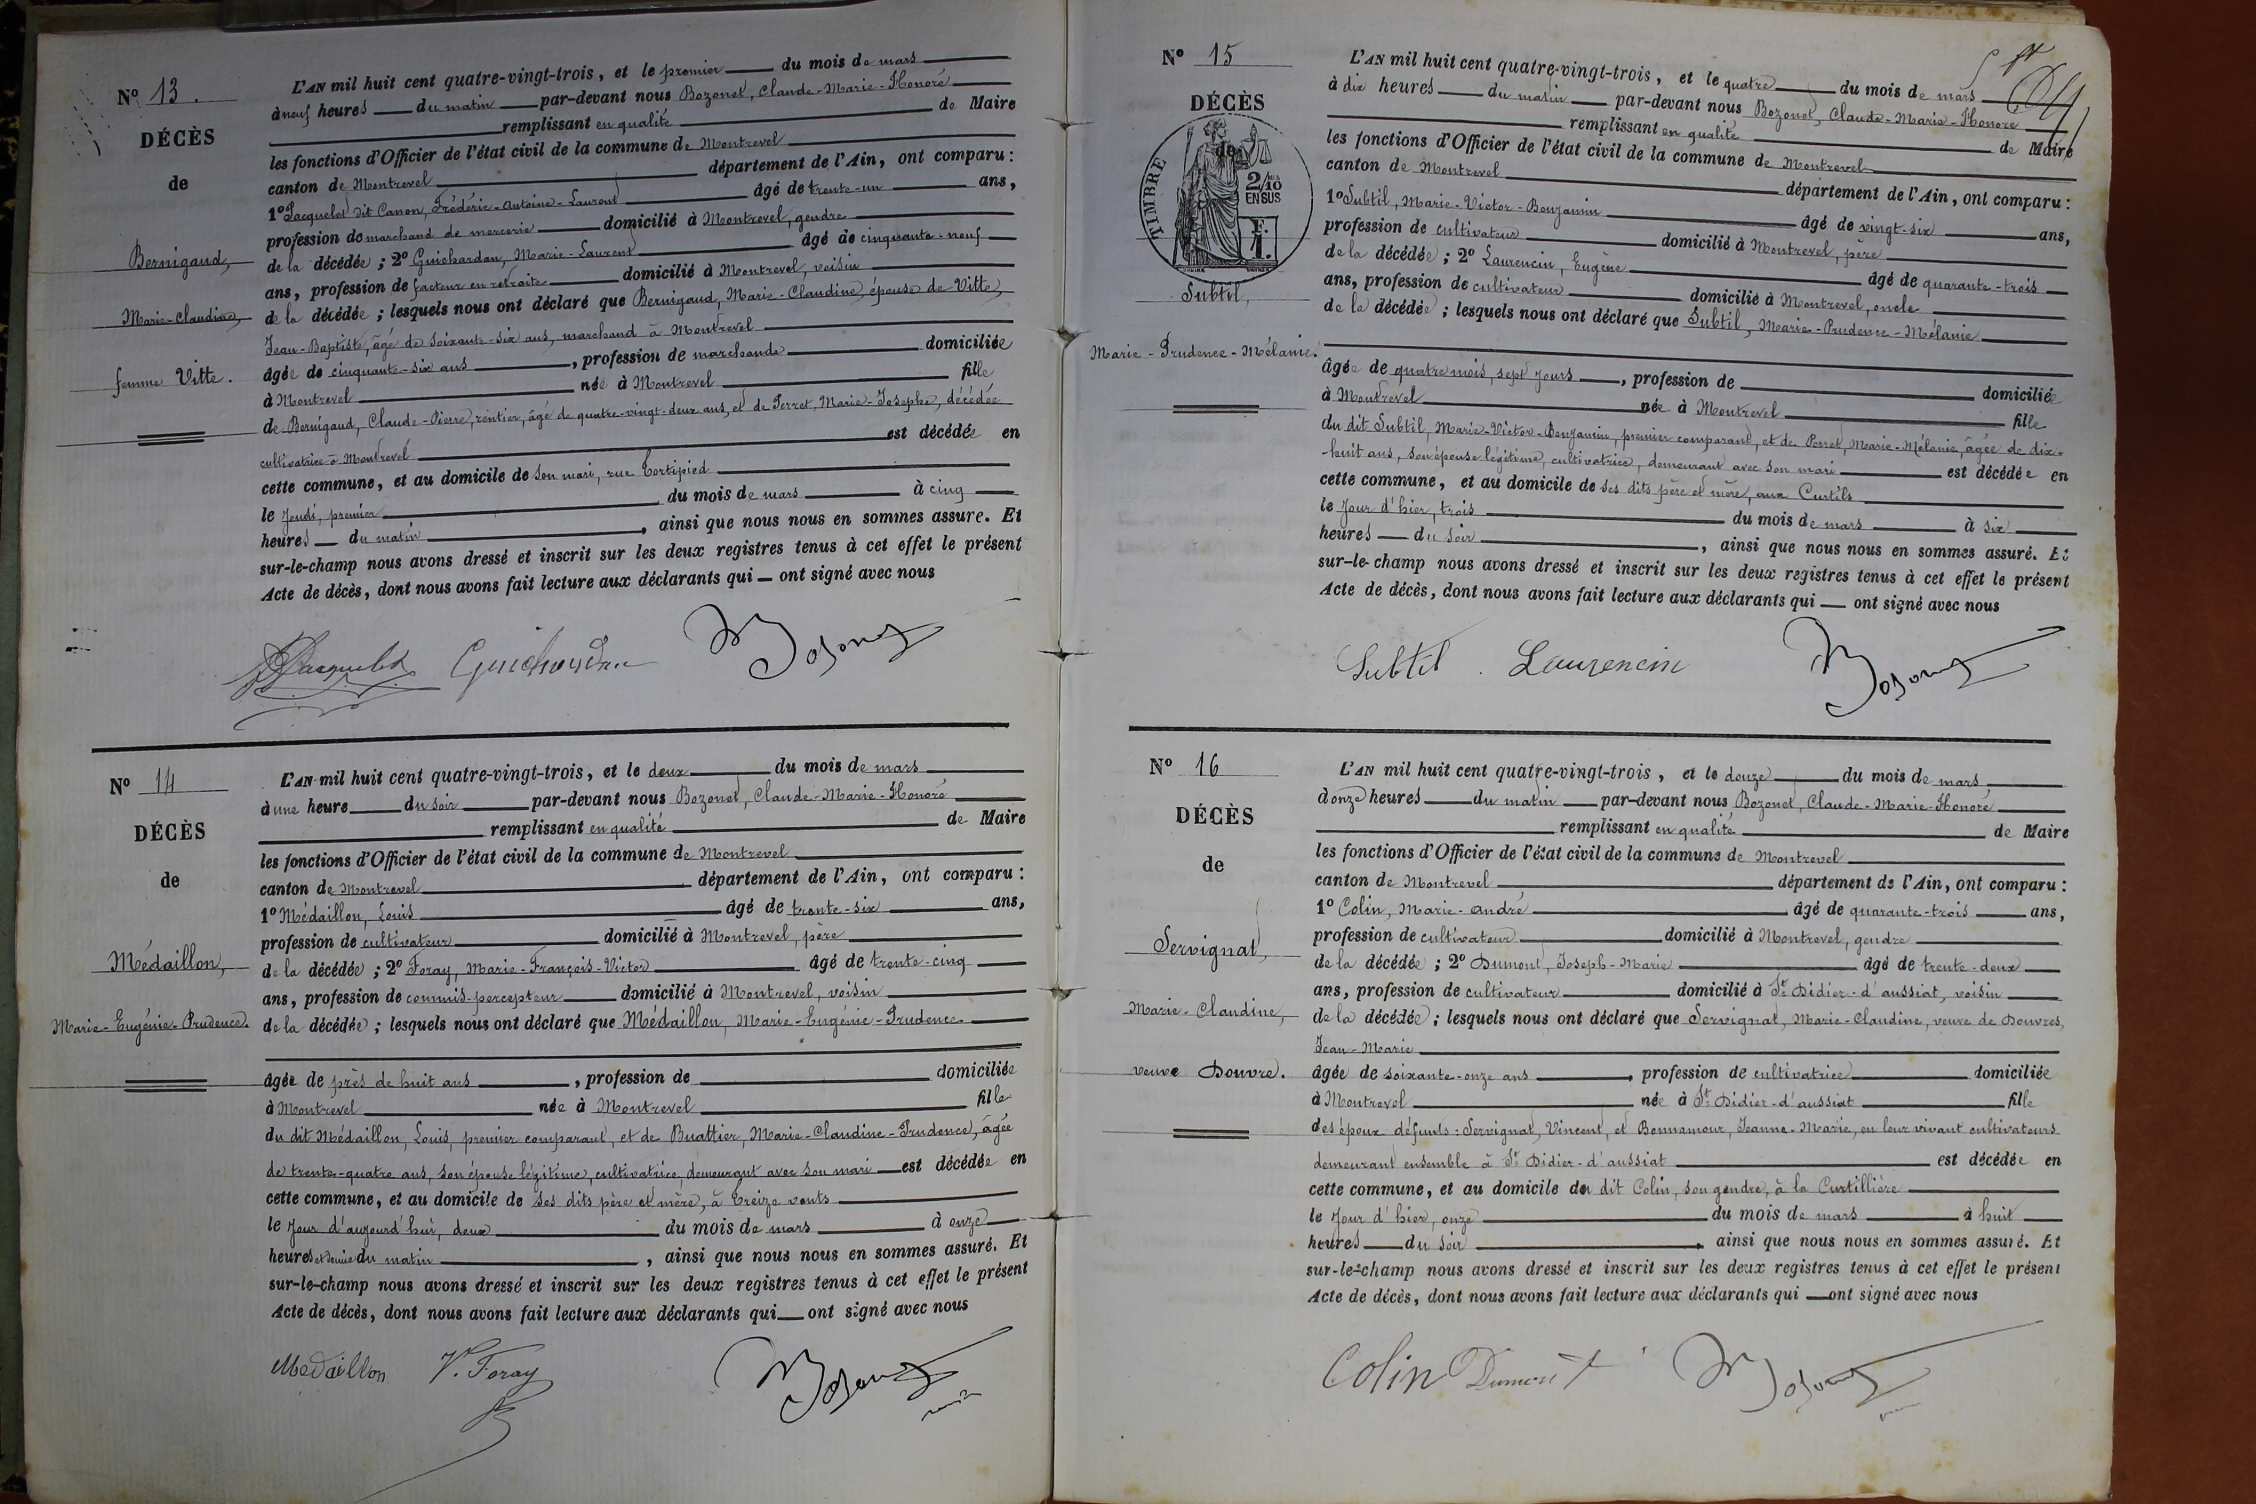 N° 13.
DÉCÈS
de
Bernigaud,
Marie-Claudine,
femme Vitte.
L'AN mil huit cent quatre-vingt-trois, et le premier du mois de mars
à neuf heures du matin par-devant nous Bozonet, Claude-Marie-Honoré
remplissant en qualité de Maire
les fonctions d'Officier de l'état civil de la commune de Montrevel
canton de Montrevel département de l'Ain, ont comparu :
1° Jacquelot dit Canon, Frédéric-Antoine-Laurent âgé de trente-un ans,
profession de marchand de mercerie domicilié à Montrevel, gendre
de la décédée ; 2° Guichardan, Marie-Laurent âgé de cinquante-neuf
ans, profession de facteur en retraite domicilié à Montrevel, voisin
de la décédée ; lesquels nous ont déclaré que Bernigaud, Marie-Claudine, épouse de Vitte,
Jean-Baptiste, âgé de soixante-six ans, marchand à Montrevel
âgée de cinquante-six ans, profession de marchande domiciliée
à Montrevel née à Montrevel fille
de Bernigaud, Claude-Pierre, rentier, âgé de quatre-vingt-deux ans, et de Perret, Marie-Josephe, décédée
cultivatrice à Montrevel est décédée en
cette commune, et au domicile de son mari, rue Tortipied
le Jeudi, premier du mois de mars à cinq
heures du matin, ainsi que nous nous en sommes assuré. Et
sur-le-champ nous avons dressé et inscrit sur les deux registres tenus à cet effet le présent
Acte de décès, dont nous avons fait lecture aux déclarants qui ont signé avec nous
Guichardan Bozonet
N° 14
DÉCÈS
de
Médaillon,
Marie-Eugénie-Prudence.
L'AN mil huit cent quatre-vingt-trois, et le deux du mois de mars
à une heure du soir par-devant nous Bozonet, Claude-Marie-Honoré
remplissant en qualité de Maire
les fonctions d'Officier de l'état civil de la commune de Montrevel
canton de Montrevel département de l'Ain, ont comparu :
1° Médaillon, Louis âgé de trente-six ans,
profession de cultivateur domicilié à Montrevel, père
de la décédée ; 2° Foray, Marie-François-Victor âgé de trente-cinq
ans, profession de commis-percepteur domicilié à Montrevel, voisin
de la décédée ; lesquels nous ont déclaré que Médaillon, Marie-Eugénie-Prudence
âgée de près de huit ans, profession de domiciliée
à Montrevel née à Montrevel fille
du dit Médaillon, Louis, premier comparant, et de Buattier, Marie-Claudine-Prudence, âgée
de trente-quatre ans, son épouse légitime, cultivatrice, demeurant avec son mari est décédée en
cette commune, et au domicile de ses dits père et mère, à Treize vents
le Jour d'aujourd'hui, deux du mois de mars à onze
heures et demie du matin, ainsi que nous nous en sommes assuré. Et
sur-le-champ nous avons dressé et inscrit sur les deux registres tenus à cet effet le présent
Acte de décès, dont nous avons fait lecture aux déclarants qui ont signé avec nous
Medaillon V. Foray Bozonet
N° 15
DÉCÈS
de
TIMBRE
2/10
EN SUS
F.
1.
Subtil,
Marie-Prudence-Mélanie.
L'AN mil huit cent quatre-vingt-trois, et le quatre du mois de mars
à dix heures du matin par-devant nous Bozonet, Claude-Marie-Honoré
remplissant en qualité de Maire
les fonctions d'Officier de l'état civil de la commune de Montrevel
canton de Montrevel département de l'Ain, ont comparu :
1° Subtil, Marie-Victor-Benjamin âgé de vingt-six ans,
profession de cultivateur domicilié à Montrevel, père
de la décédée ; 2° Laurencin, Eugène âgé de quarante-trois
ans, profession de cultivateur domicilié à Montrevel, oncle
de la décédée ; lesquels nous ont déclaré que Subtil, Marie-Prudence-Mélanie
âgée de quatre mois, sept jours, profession de domiciliée
à Montrevel née à Montrevel fille
du dit Subtil, Marie-Victor-Benjamin, premier comparant, et de Perret, Marie-Mélanie, âgée de dix-
-huit ans, son épouse légitime, cultivatrice, demeurant avec son mari est décédée en
cette commune, et au domicile de ses dits père et mère, aux Curtils
le Jour d'hier, trois du mois de mars à six
heures du soir, ainsi que nous nous en sommes assuré. Et
sur-le-champ nous avons dressé et inscrit sur les deux registres tenus à cet effet le présent
Acte de décès, dont nous avons fait lecture aux déclarants qui ont signé avec nous
Subtil. Laurencin Bozonet
N° 16
DÉCÈS
de
Servignat,
Marie-Claudine,
veuve Douvre.
L'AN mil huit cent quatre-vingt-trois, et le douze du mois de mars
à onze heures du matin par-devant nous Bozonet, Claude-Marie-Honoré
remplissant en qualité de Maire
les fonctions d'Officier de l'état civil de la commune de Montrevel
canton de Montrevel département de l'Ain, ont comparu :
1° Colin, Marie-André âgé de quarante-trois ans,
profession de cultivateur domicilié à Montrevel, gendre
de la décédée ; 2° Dumont, Joseph-Marie âgé de trente-deux
ans, profession de cultivateur domicilié à St Didier-d'aussiat, voisin
de la décédée ; lesquels nous ont déclaré que Servignat, Marie-Claudine, veuve de Douvres,
Jean-Marie
âgée de soixante-onze ans, profession de cultivatrice domiciliée
à Montrevel née à St Didier-d'aussiat fille
des époux défunts : Servignat, Vincent, et Bonnamour, Jeanne-Marie, en leur vivant cultivateurs
demeurant ensemble à St Didier-d'aussiat est décédée en
cette commune, et au domicile du dit Colin, son gendre, à la Curtillière
le Jour d'hier, onze du mois de mars à huit
heures du soir, ainsi que nous nous en sommes assuré. Et
sur-le-champ nous avons dressé et inscrit sur les deux registres tenus à cet effet le présent
Acte de décès, dont nous avons fait lecture aux déclarants qui ont signé avec nous
Colin Dumont Bozonet